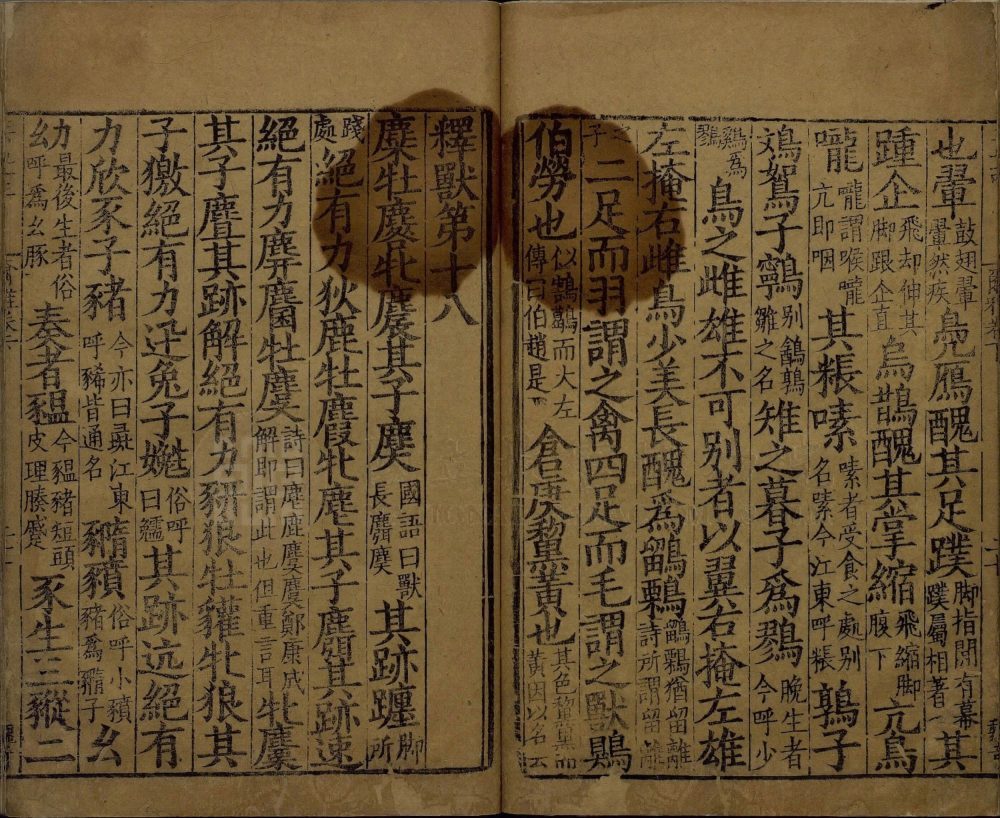 也翬鼓翅翬翬然疾鳧鴈醜其足蹼脚指間有幕蹼屬相著其
踵企飛却伸其脚跟企直烏鵲醜其掌縮飛縮脚腹下亢鳥
嚨嚨謂喉嚨亢即咽其粻嗉嗉者受食之處別名嗉今江東呼粻鶉子
鳼鴽子鸋別鷂鶉雛之名雉之暮子爲鷚晚生者今呼少
雞爲鷚鳥之雌雄不可別者以翼右掩左雄
左掩右雌鳥少美長醜爲鶹鷅鶹鷅猶留離詩所謂留離之
子二足而羽謂之禽四足而毛謂之獸鵙
伯勞也似鶷鶡而大左傳曰伯趙是倉庚黧黃也其色黧黑而黃因以名云
釋獸第十八
麋牡麔牝麎其子䴠國語曰獸長麛䴠其跡躔脚所
踐處絕有力狄鹿牡麚牝麀其子麛其跡速
絕有力麉麕牡麌詩曰麀鹿麌麌鄭康成解即謂此也但重言耳牝麜
其子麆其跡解絕有力豜狼牡獾牝狼其
子獥絕有力迅兔子嬎俗呼曰䨲其跡迒絕有
力欣豕子豬今亦曰彘江東呼豨皆通名䝐豶俗呼小豶豬爲䝐子幺
幼最後生者俗呼爲幺豚奏者豱今豱豬短頭皮理腠蹙豕生三豵二